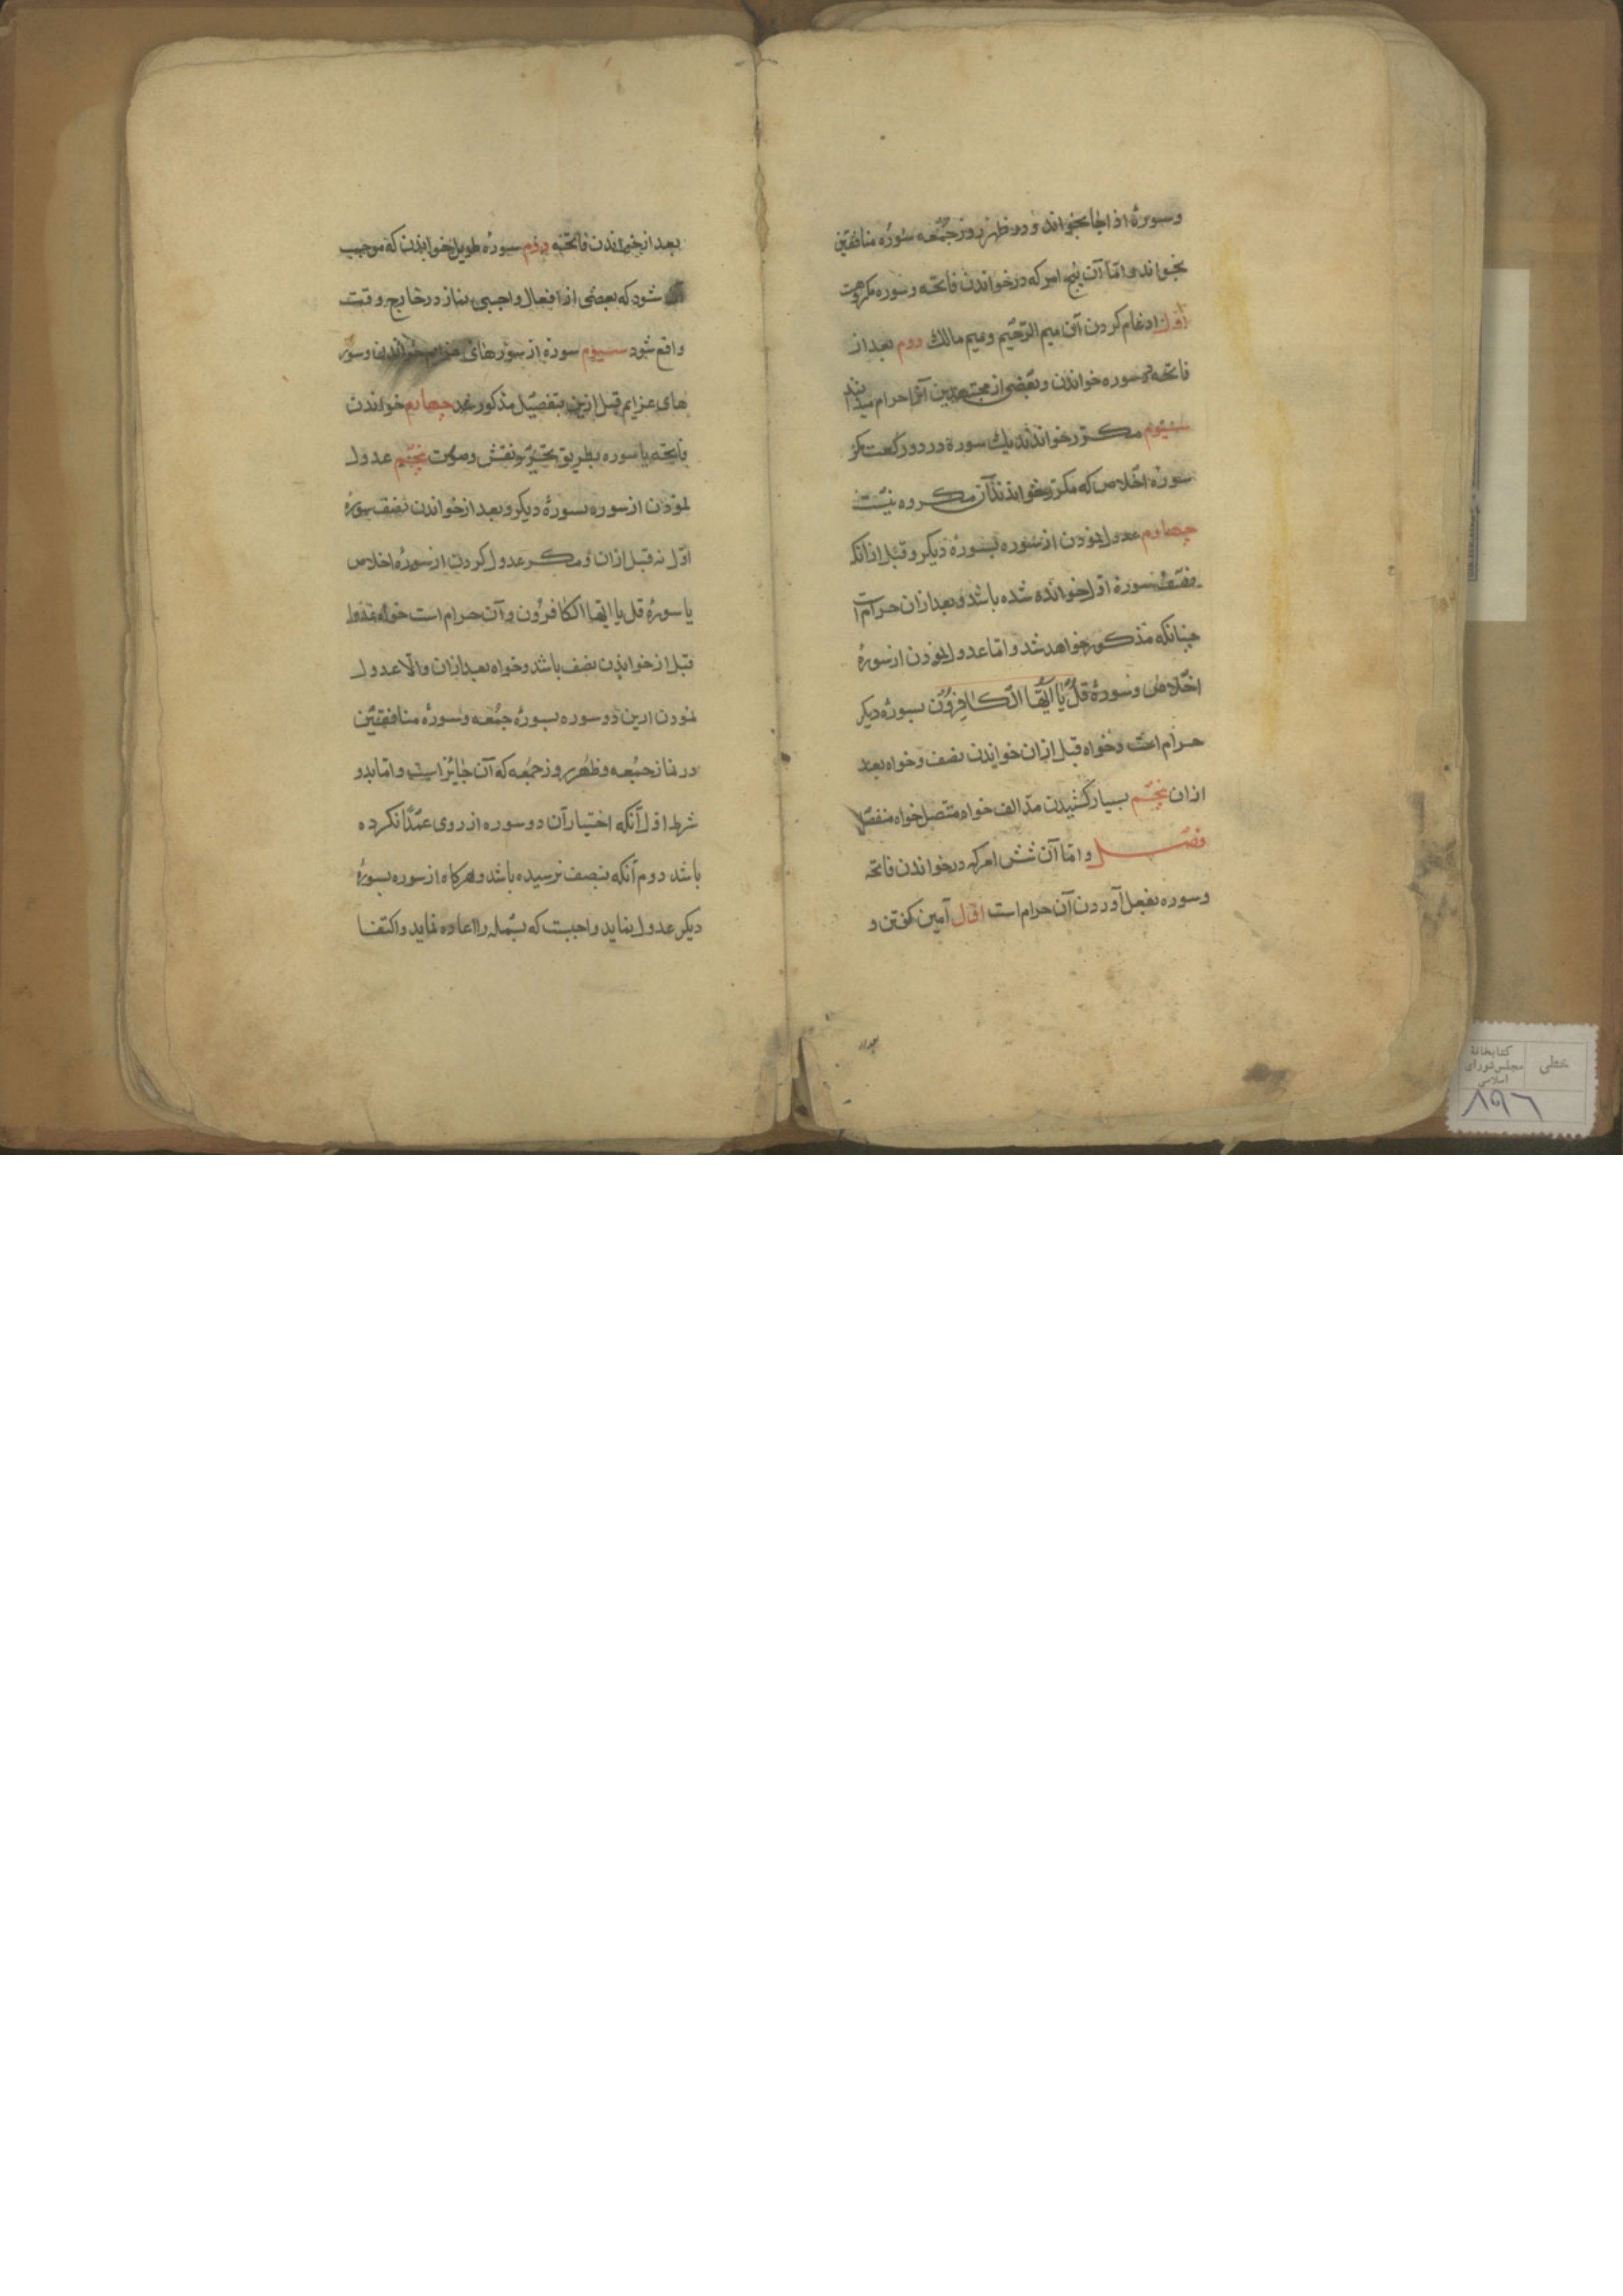 وسورهٔ اذا جا بخواند و در ظهر روز جمعه سوره منافقین
بخواند و امّا آن پنج امر که در خواندن فاتحه و سوره مکروهست
اول ادغام کردن آن میم الرحیم و میم مالك دوم بعد از
فاتحه دو سوره خواندن و بعضی از مجتهدین آنرا حرام میدانند
سیوم مکرّر خواندن یك سوره در دو رکعت مکر
سوره اخلاص که مکرر بخوانند آن مکروه نیست
چهارم عدول نمودن از سوره بسورهٔ دیکر و قبل از آنکه
نصف سورهٔ اول خوانده شده باشد و بعد از ان حرام است
چنانکه مذکور خواهد شد و امّا عدول نمودن از سورهٔ
اخلاص و سورهٔ قُلْ یٰا اَیُّهَا الْکٰافِرُوْن بسورهٔ دیکر
حرام است و خواه قبل از ان خواندن نصف و خواه بعد
از ان پنجم بسیار کشیدن مدّ الف خواه متصل خواه منفصل
فصل و امّا آن شش امر که در خواندن فاتحه
و سوره بفعل آوردن آن حرام است اوّل آمین کفتن و
بعد از
بعد از خواندن فاتحه دوم سوره طویل خواندن که موجب
شود که بعضی از افعال واجبی نماز در خارج وقت
واقع شود سیوم سوره از سورهای عزایم خواندن و سور
های عزایم قبل ازین بتفصیل مذکور شد چهارم خواندن
فاتحه یا سوره بطریق نقش و صوت پنجم عدول
نمودن از سوره بسورهٔ دیکر و بعد از خواندن نصف سورهٔ
اوّل نه قبل از ان و مکر عدول کردن از سورهٔ اخلاص
یا سورهٔ قل یا ایّها الکافرون و آن حرام است خواه عدول
قبل از خواندن نصف باشد و خواه بعد از ان والّا عدول
نمودن ازین دو سوره بسورهٔ جمعه و سورهٔ منافقین
در نماز جمعه و ظهر روز جمعه که آن جایز است و اما بدو
شرط اول آنکه اختیار آن دو سوره از روی عمدًا نکرده
باشد دوم آنکه بنصف نرسیده باشد و هرکاه از سوره بسورهٔ
دیکر عدول نماید واجبست که بسمله را اعاده نماید و اکتفا
خطی
کتابخانهٔ
مجلس شورای
اسلامی
۸۹۶